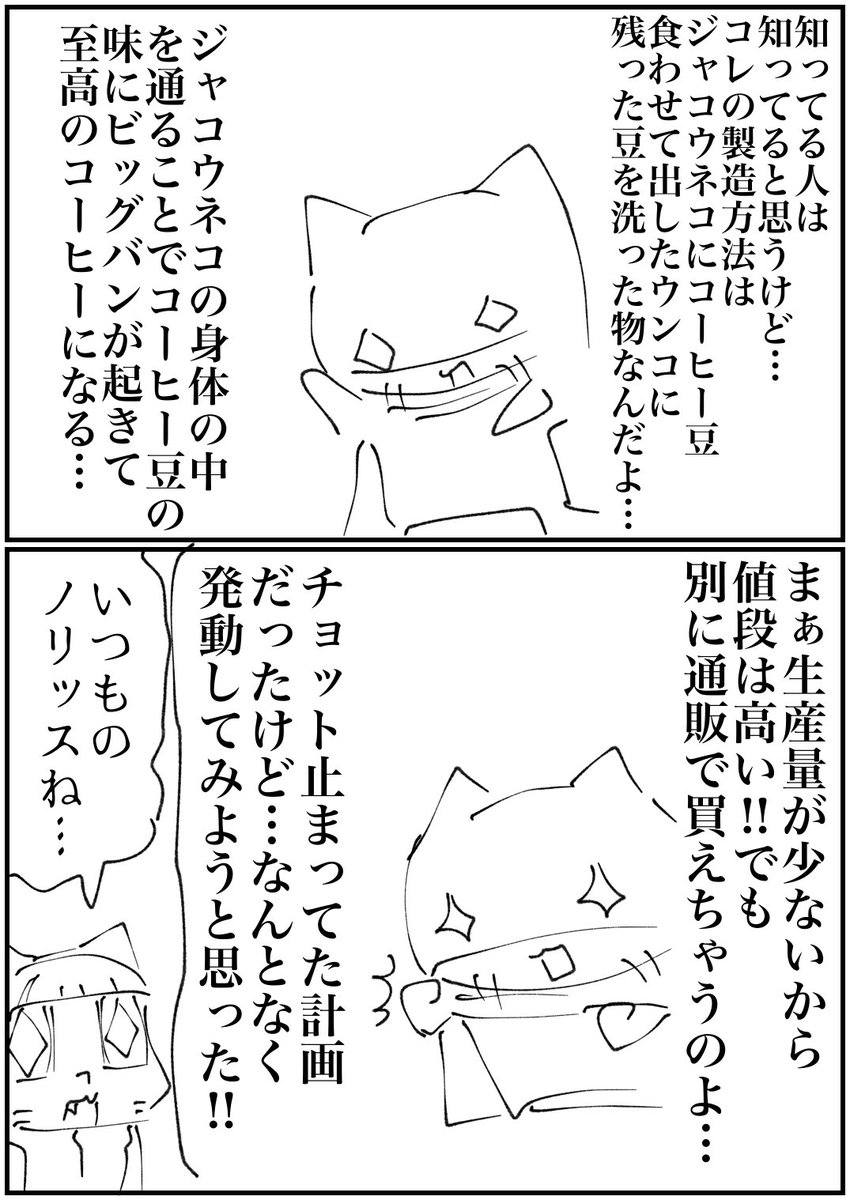 知ってる人は
知ってると思うけど…
コレの製造方法は
ジャコウネコにコーヒー豆
食わせて出したウンコに
残った豆を洗った物なんだよ…
ジャコウネコの身体の中
を通ることでコーヒー豆の
味にビッグバンが起きて
至高のコーヒーになる…
まぁ生産量が少ないから
値段は高い!!でも
別に通販で買えちゃうのよ…
チョット止まってた計画
だったけど…なんとなく
発動してみようと思った!!
いつもの
ノリッスね…